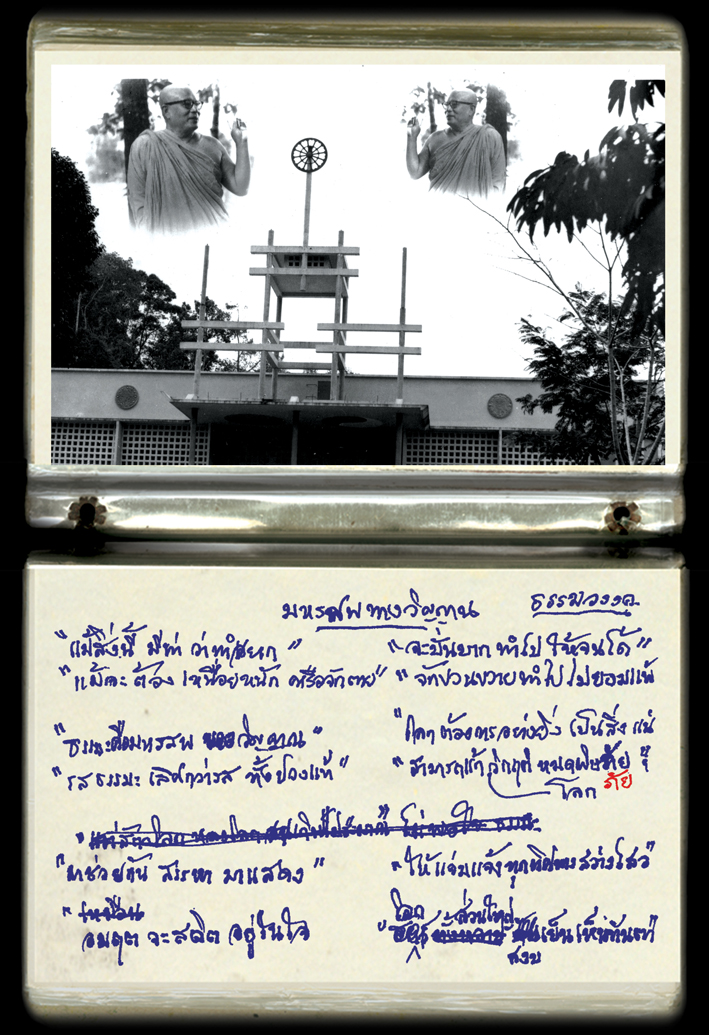 มหรสพทางวิญญาณ ธรรมวงวค
"แม้สิ่งนี้ มีท่า ว่าทำยาก" "จะบั่นบาก ทำไป ให้จนได้"
"แม้จะ ต้อง เหนื่อยหนัก หรือจักตาย" "จักขวนขวาย ทำไป ไม่ยอมแพ้
"ธรรมะคือมหรสพ วิญญาณ" ใคๆ ต้องการ อย่างยิ่ง เป็นสิ่ง แน่
"รสธรรมะ เลิศกว่ารส ทั้งปวงแท้" "สามารถแก้ วิกฤต หมดพิษภัย
โลก ภัย
"มาช่วยกัน สรรหา มาแสดง" "ให้แจ่มแจ้ง ทุกทิศทาง สว่างไสว"
"เหมือน โลก ส่วนใหญ่
อมฤต จะสถิต อยู่ในใจ เย็น เห็นทันตา"
สงบ